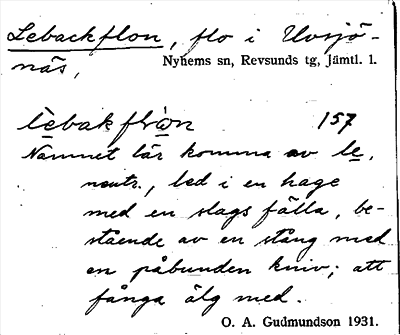 Lebackflon, flo i Uvsjö-
näs, Nyhems sn, Revsunds tg, Jämtl. l.
157
Namnet lär komma av le,
neutr., led i en hage
med en slags fälla, be-
stående av en stång med
en påbunden kniv; att
fånga älg med.
O. A. Gudmundson 1931.